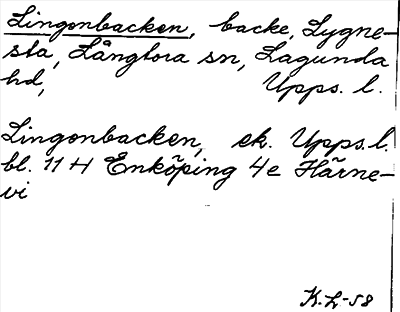 Lingonbacken, backe, Lygne-
sta, Långtora sn, Lagunda
hd, Upps. l.
Lingonbacken, ek. Upps. l.
bl. 11 H Enköping 4e Härne-
vi
K.L-58